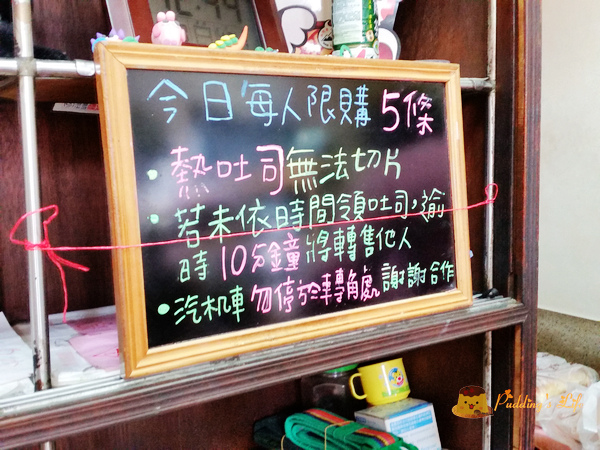 今日每人限購5條
・熱吐司無法切片
・若未依時間領吐司，逾
時10分鐘將轉售他人
・汽机車勿停於轉角處謝謝合作
Pudding's